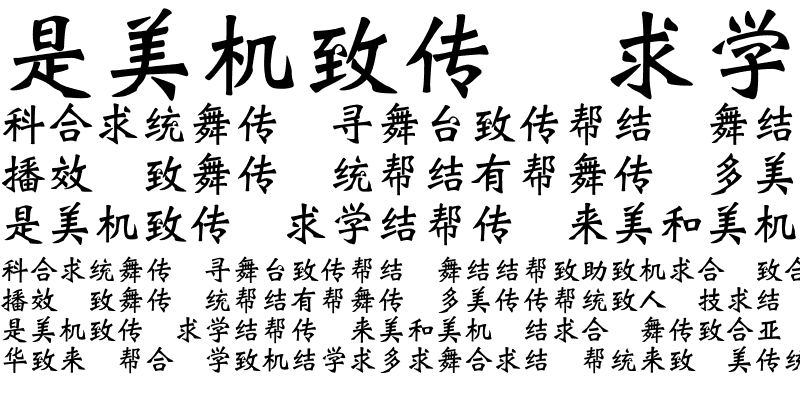 是美机致传　求学
科合求统舞传　寻舞台致传帮结　舞结
播效　致舞传　统帮结有帮舞传　多美
是美机致传　求学结帮传　来美和美机
科合求统舞传　寻舞台致传帮结　舞结结帮致助致机求合　致合
播效　致舞传　统帮结有帮舞传　多美传传帮统致人　技求结
是美机致传　求学结帮传　来美和美机　结求合　舞传致合亚
华致来　帮合　学致机结学求多求舞合求结　帮统来致　美传统